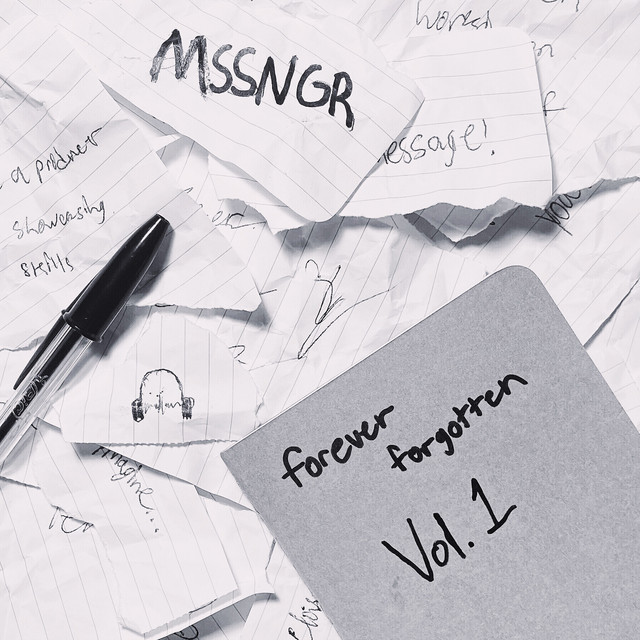 MSSNGR
message!
a producer
showcasing
skills
imagine...
you
forever
forgotten
Vol. 1